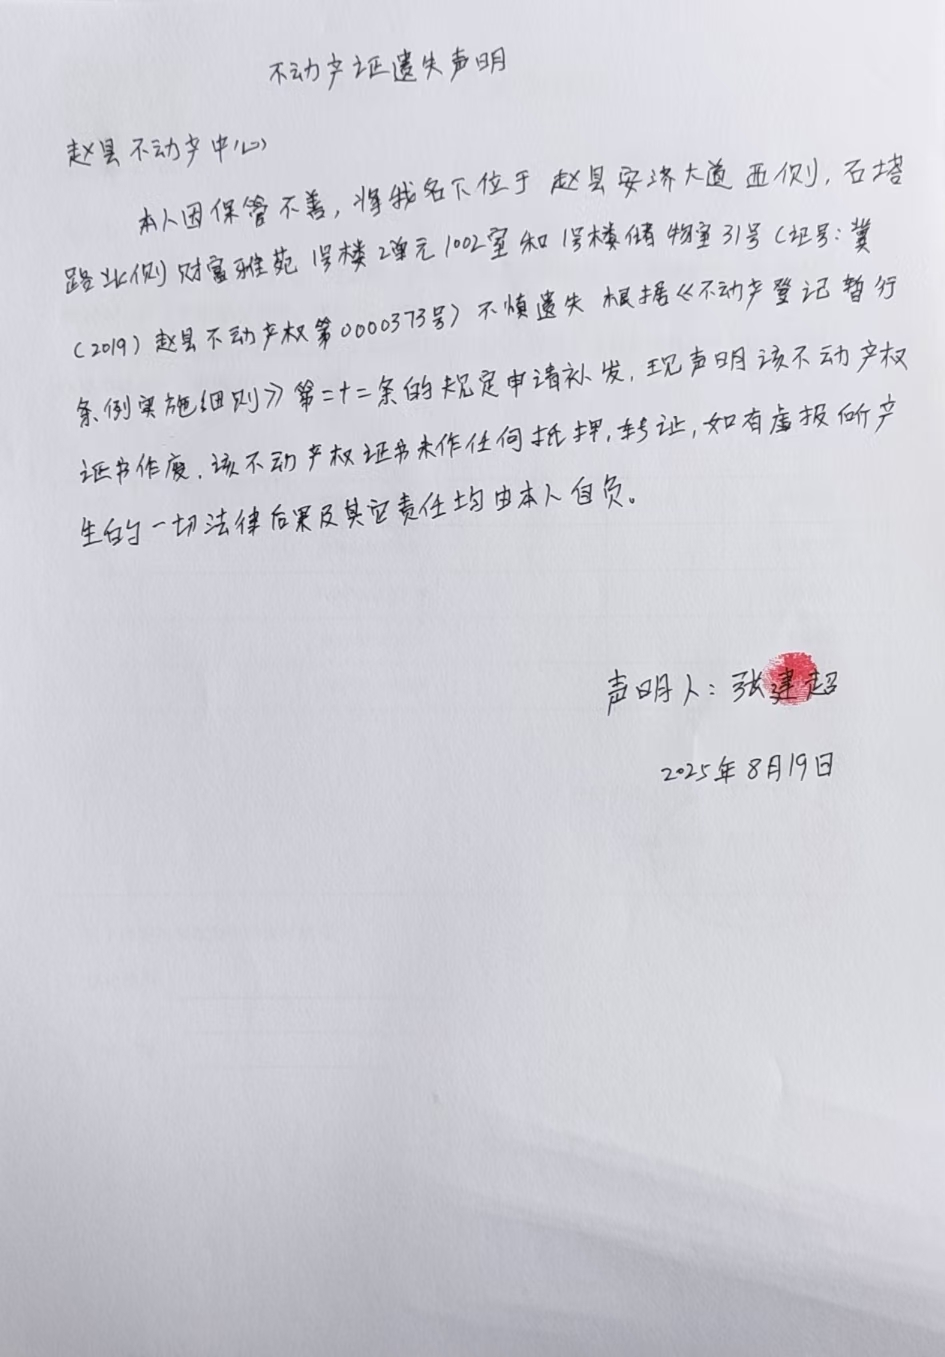 不动产证遗失声明
赵县不动产中心
本人因保管不善，将我名下位于赵县安济大道西侧，石塔
路北侧财富雅苑1号楼2单元1002室和1号楼储物室31号（证号：冀
（2019）赵县不动产权第0000373号）不慎遗失根据《不动产登记暂行
条例实施细则》第二十二条的规定申请补发，现声明该不动产权
证书作废．该不动产权证书未作任何抵押，转让，如有虚报所产
生的一切法律后果及其它责任均由本人自负。
声明人：张建超
2025年8月19日